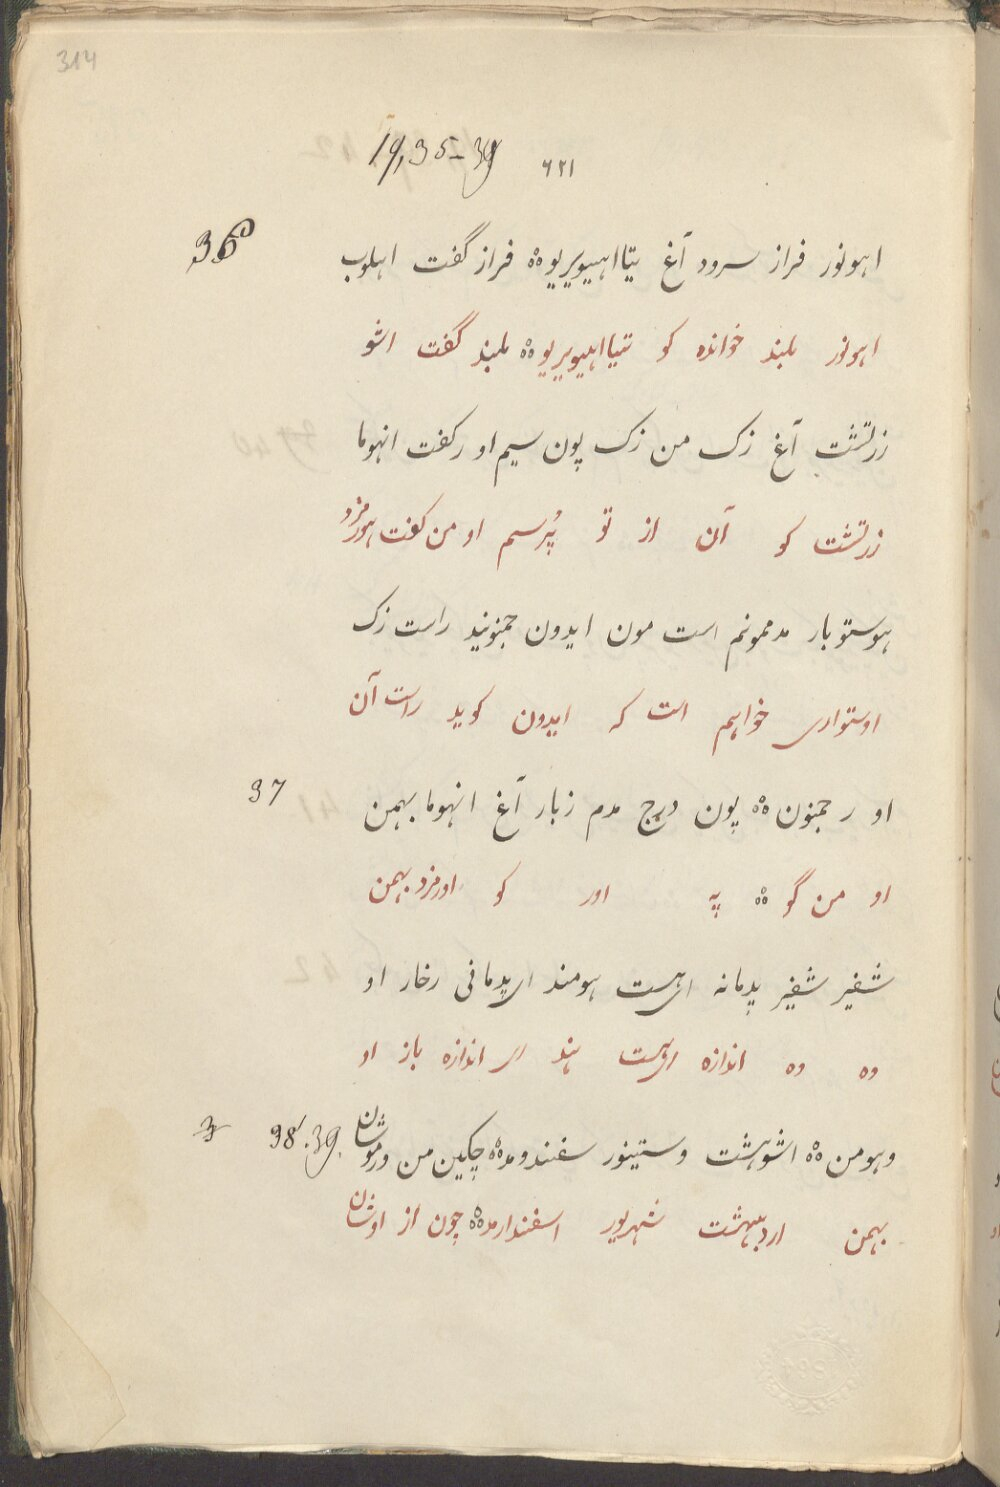 314
19, 35-39 ۶۲۱
اهونور فراز سرود آغ یتااهیویریو ه ه فراز گفت اهلوب 36
اهونور بلند خوانده کو یتیااهیویریو ه ه بلند گفت اشو
زرتشت آغ زک من زک پون سیم او ر گفت انهوما
زرتشت کو آن از تو پُرسیم او من گفت هورمزد
هوستوبار مدممونم است مون ایدون جمنونید راست زک
اوستواری خواهیم است که ایدون کوید راست آن
او ر جمنون ه ه پون درج مدم زبار آغ انهوما بهمن 37
او من گو ه ه په اور کو اورمزد بهمن
شفیر شفیر پدمانه ای هست هومند ای پدمانی رخار او
وه وه اندازه ای هست هند ای اندازه باز او
وهومن ه ه اشوهشت وستینور سفندومد ه ه چکین من ورموشان 38. 39.
بهمن اردیبهشت شهریور اسفندارمد ه ه چون از اوشان